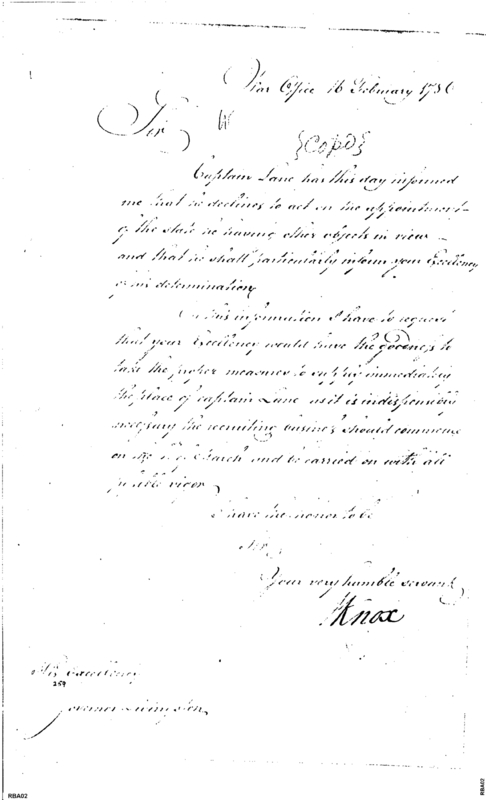 War Office 16 February 1786
Sir
{Copy}
Captain Lane has this day informed
me that he declines to act on the appointment
of the state he having other objects in view
and that he shall particularly inform your Excellency
of his determination,
On this information I have to request
that your Excellency would have the goodness to
take the proper measures to supply immediately
the place of captain Lane as it is indispensibly
necessary the recruiting business should commence
on the of March and be carried on with all
possible vigor
I have the honor to be
Sir
Your very humble servant
HKnox
His Excellency
259
Governor Livingston
RBA02
RBA02